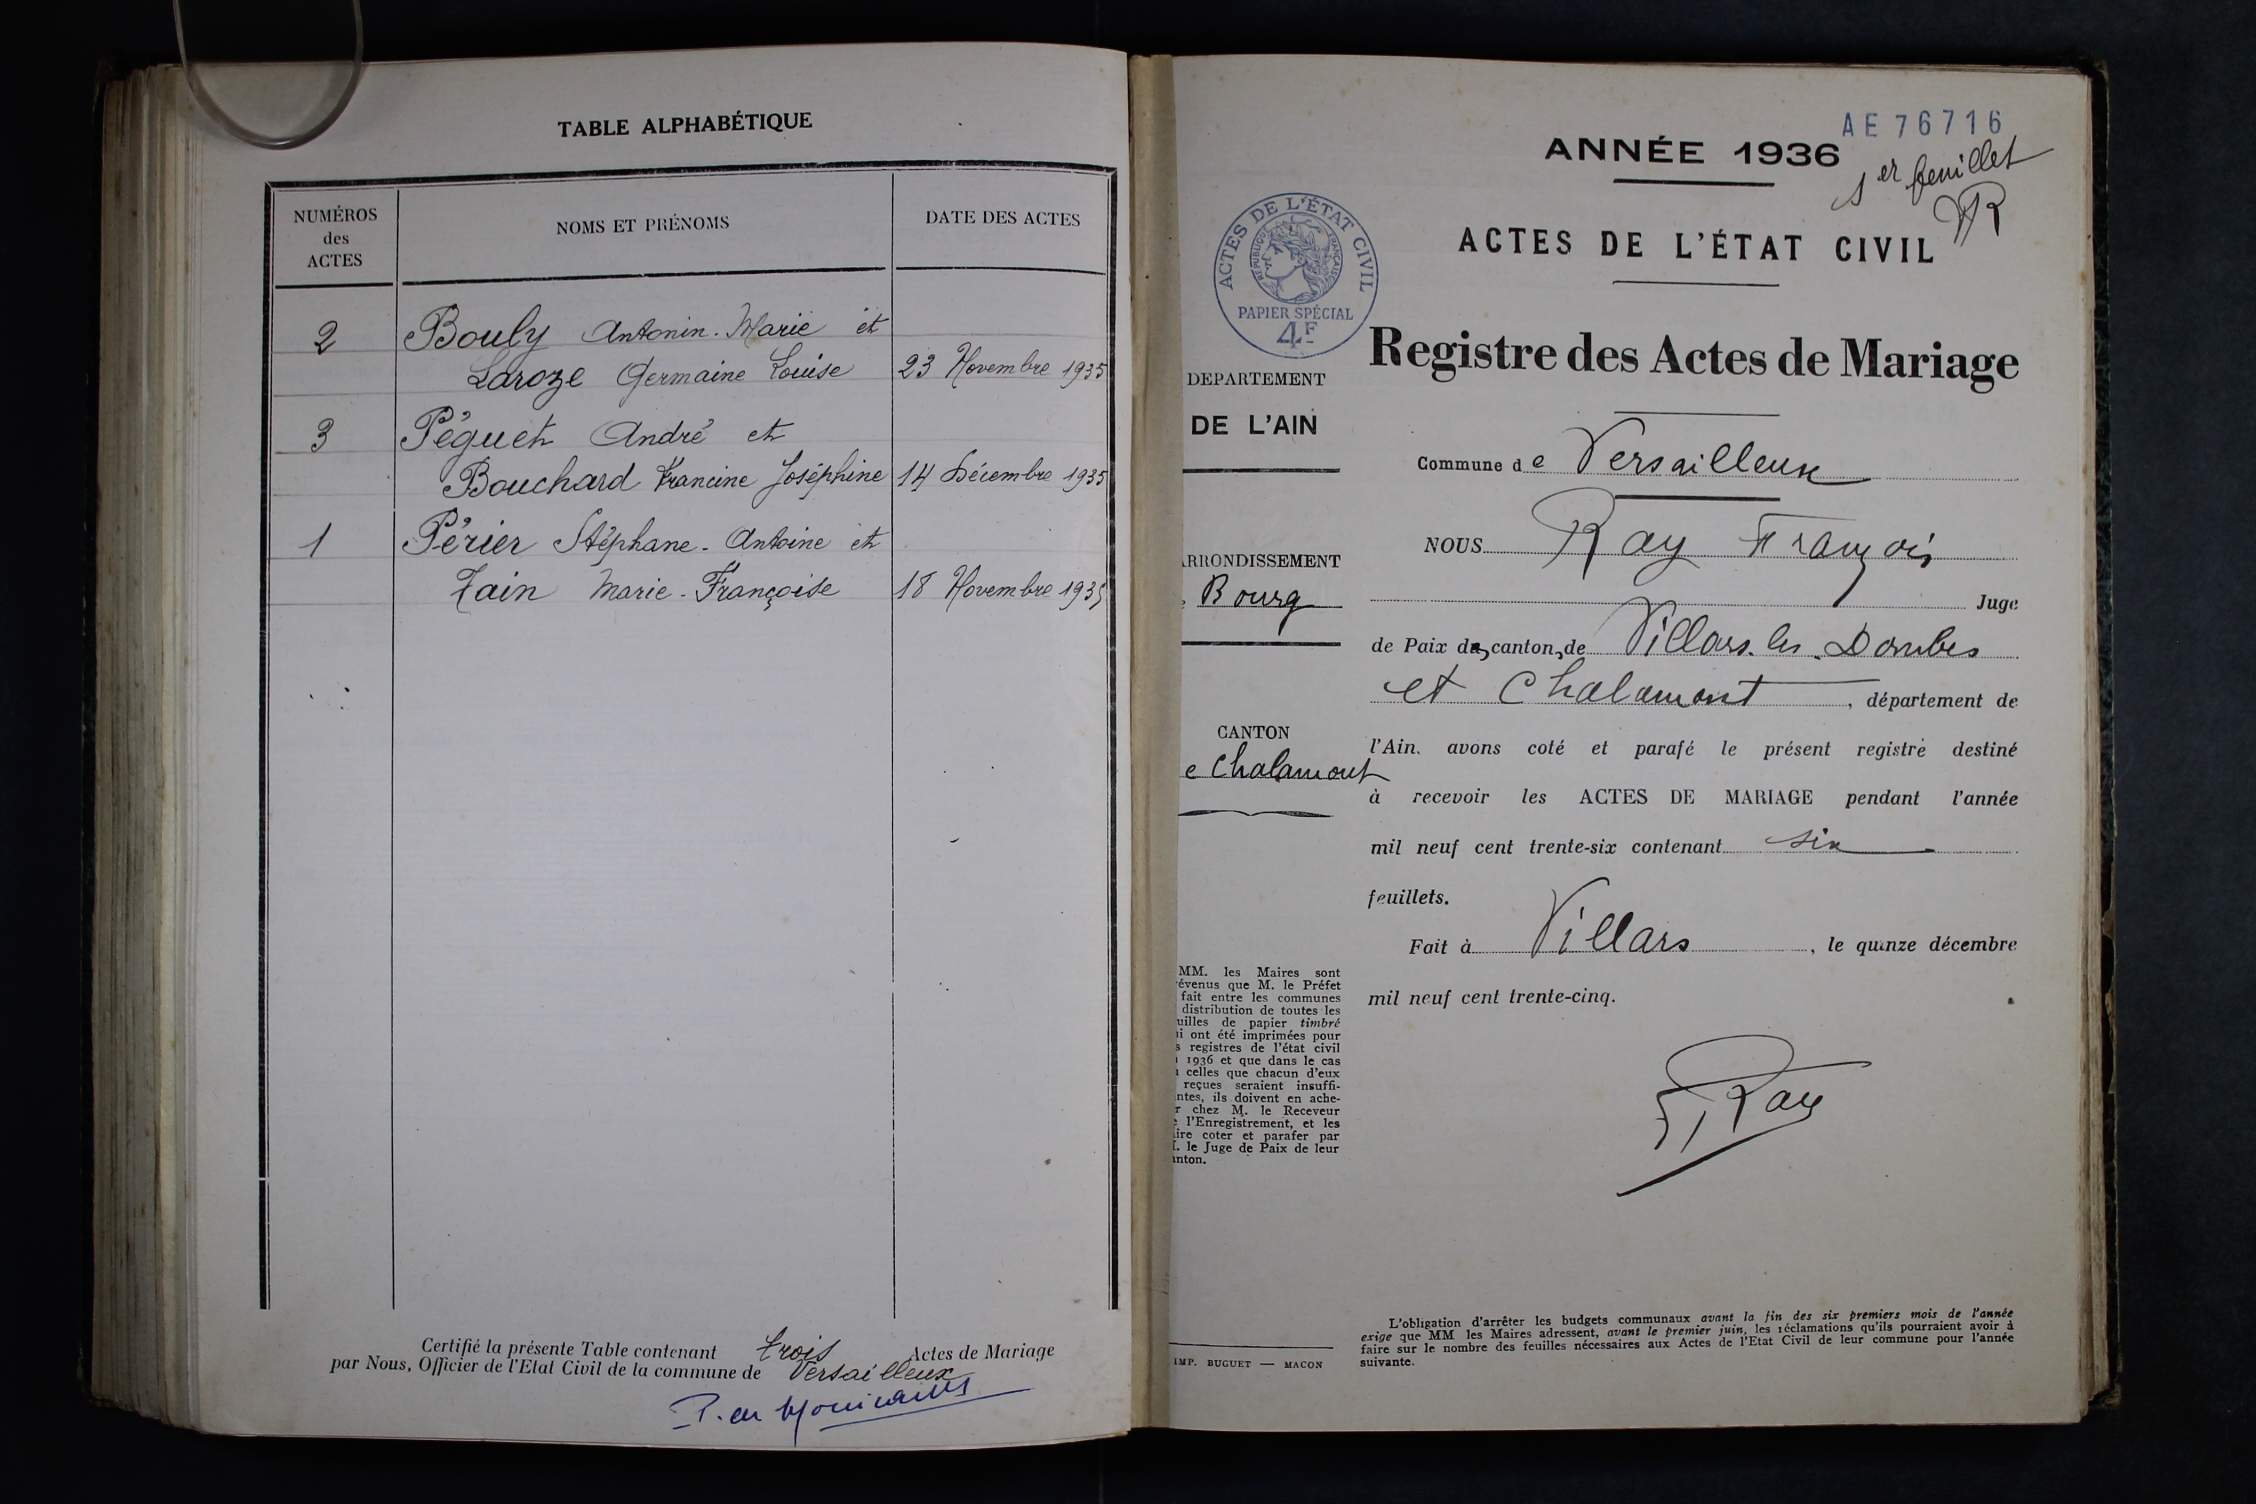 TABLE ALPHABÉTIQUE
NUMÉROS
des
ACTES
NOMS ET PRÉNOMS
DATE DES ACTES
2 Bouly Antonin-Marie et
Laroze Germaine Louise 23 Novembre 1935
3 Péguet André et
Bouchard Francine Joséphine 14 Décembre 1935
1 Périer Stéphane-Antoine et
Marie-Françoise 18 Novembre 1935
Certifié la présente Table contenant trois Actes de Mariage
par Nous, Officier de l'Etat Civil de la commune de Versailleux
AE 76716
ANNÉE 1936
1er feuillet
ACTES DE L'ÉTAT CIVIL
ACTES DE L'ÉTAT CIVIL
RÉPUBLIQUE FRANÇAISE
PAPIER SPÉCIAL
4F
Registre des Actes de Mariage
DEPARTEMENT
DE L'AIN
ARRONDISSEMENT
Bourg
CANTON
e Chalamont
MM. les Maires sont
révenus que M. le Préfet
fait entre les communes
distribution de toutes les
uilles de papier timbré
ui ont été imprimées pour
s registres de l'état civil
1936 et que dans le cas
celles que chacun d'eux
reçues seraient insuffi-
ntes, ils doivent en ache-
r chez M. le Receveur
e l'Enregistrement, et les
ire coter et parafer par
. le Juge de Paix de leur
anton.
IMP. BUGUET — MACON
Commune de Versailleux
NOUS Ray François
Juge
de Paix des cantons de Villars les Dombes
et Chalamont, département de
l'Ain. avons coté et parafé le présent registre destiné
à recevoir les ACTES DE MARIAGE pendant l'année
mil neuf cent trente-six contenant six
feuillets.
Fait à Villars, le quinze décembre
mil neuf cent trente-cinq.
F. Ray
L'obligation d'arrêter les budgets communaux avant la fin des six premiers mois de l'année
exige que MM les Maires adressent, avant le premier juin, les réclamations qu'ils pourraient avoir à
faire sur le nombre des feuilles nécessaires aux Actes de l'Etat Civil de leur commune pour l'année
suivante.